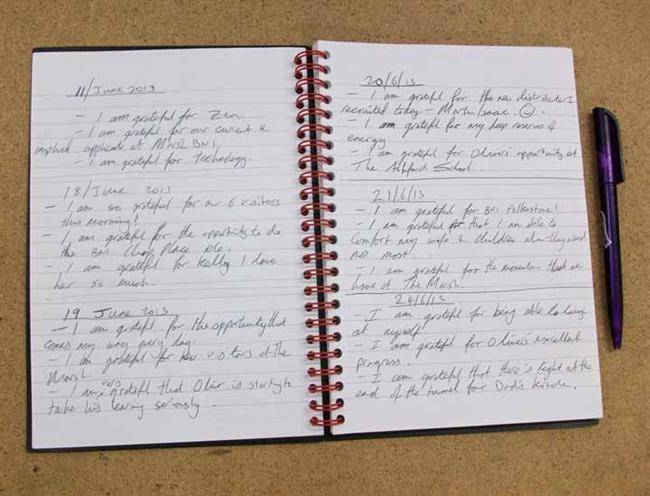 11/June 2013
- I am grateful for Zen
- I am grateful for our current &
implied applicants at Marsh BNI
- I am grateful for Technology.
18/June 2013
- I am so grateful for our 6 visitors
this morning!
- I am grateful for the opportunity to do
the BNI Place
- I am grateful for Kelly I love
her so much
19 June 2013
- I am grateful for the opportunity that
comes my way every day.
- I am grateful for new visitors at The
Marsh
- I am very grateful that Oliver is starting to
take his learning seriously.
20/6/13
- I am grateful for the new distributor I
recruited today - Martin Isaac. ☺
- I am grateful for my deep reserve of
energy
- I am grateful for Oliver's opportunity at
The Ashford School.
21/6/13
- I am grateful for BNI Folkestone!
- I am grateful that I am able to
comfort my wife & children when they need
me most.
- I am grateful for the momentum that we
have at The Marsh.
24/6/13.
- I am grateful for being able to laugh
at myself!
- I am grateful for Oliver's excellent
progress.
- I am grateful that there is light at the
end of the tunnel for Dad's kitchen.